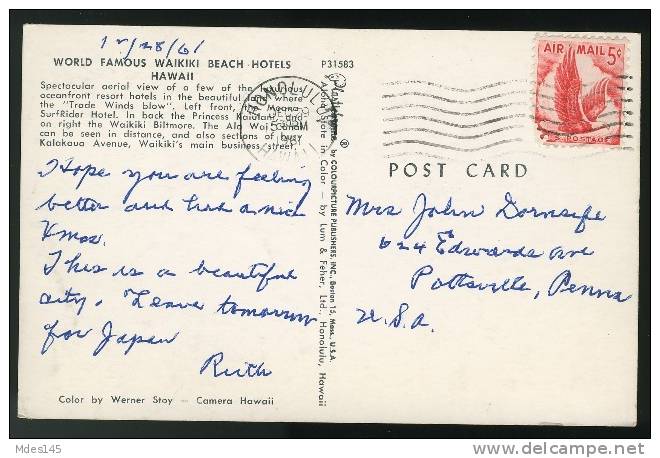 12/28/61
WORLD FAMOUS WAIKIKI BEACH HOTELS
HAWAII
Spectacular aerial view of a few of the luxurious
oceanfront resort hotels in the beautiful land where
the "Trade Winds blow". Left front, the Moana -
SurfRider Hotel. In back the Princess Kaiulani and
on right the Waikiki Biltmore. The Ala Wai Canal
can be seen in distance, and also sections of busy
Kalakaua Avenue, Waikiki's main business street.
I hope you are feeling
better and had a nice
Xmas.
This is a beautiful
city. Leave tomorrow
for Japan
Ruth
Color by Werner Stoy — Camera Hawaii
P31583
Plastichrome ®
by COLOURPICTURE PUBLISHERS, INC., Boston 15, Mass., U.S.A.
Aloha State in Color — by Lum & Feher, Ltd., Honolulu, Hawaii
HONOLULU
1961
HAWAII
AIR MAIL 5¢
U.S. POSTAGE
POST CARD
Mrs John Dornsife
624 Edwards Ave
Pottsville, Penna
U.S.A.
Mdes145
delcampe.net